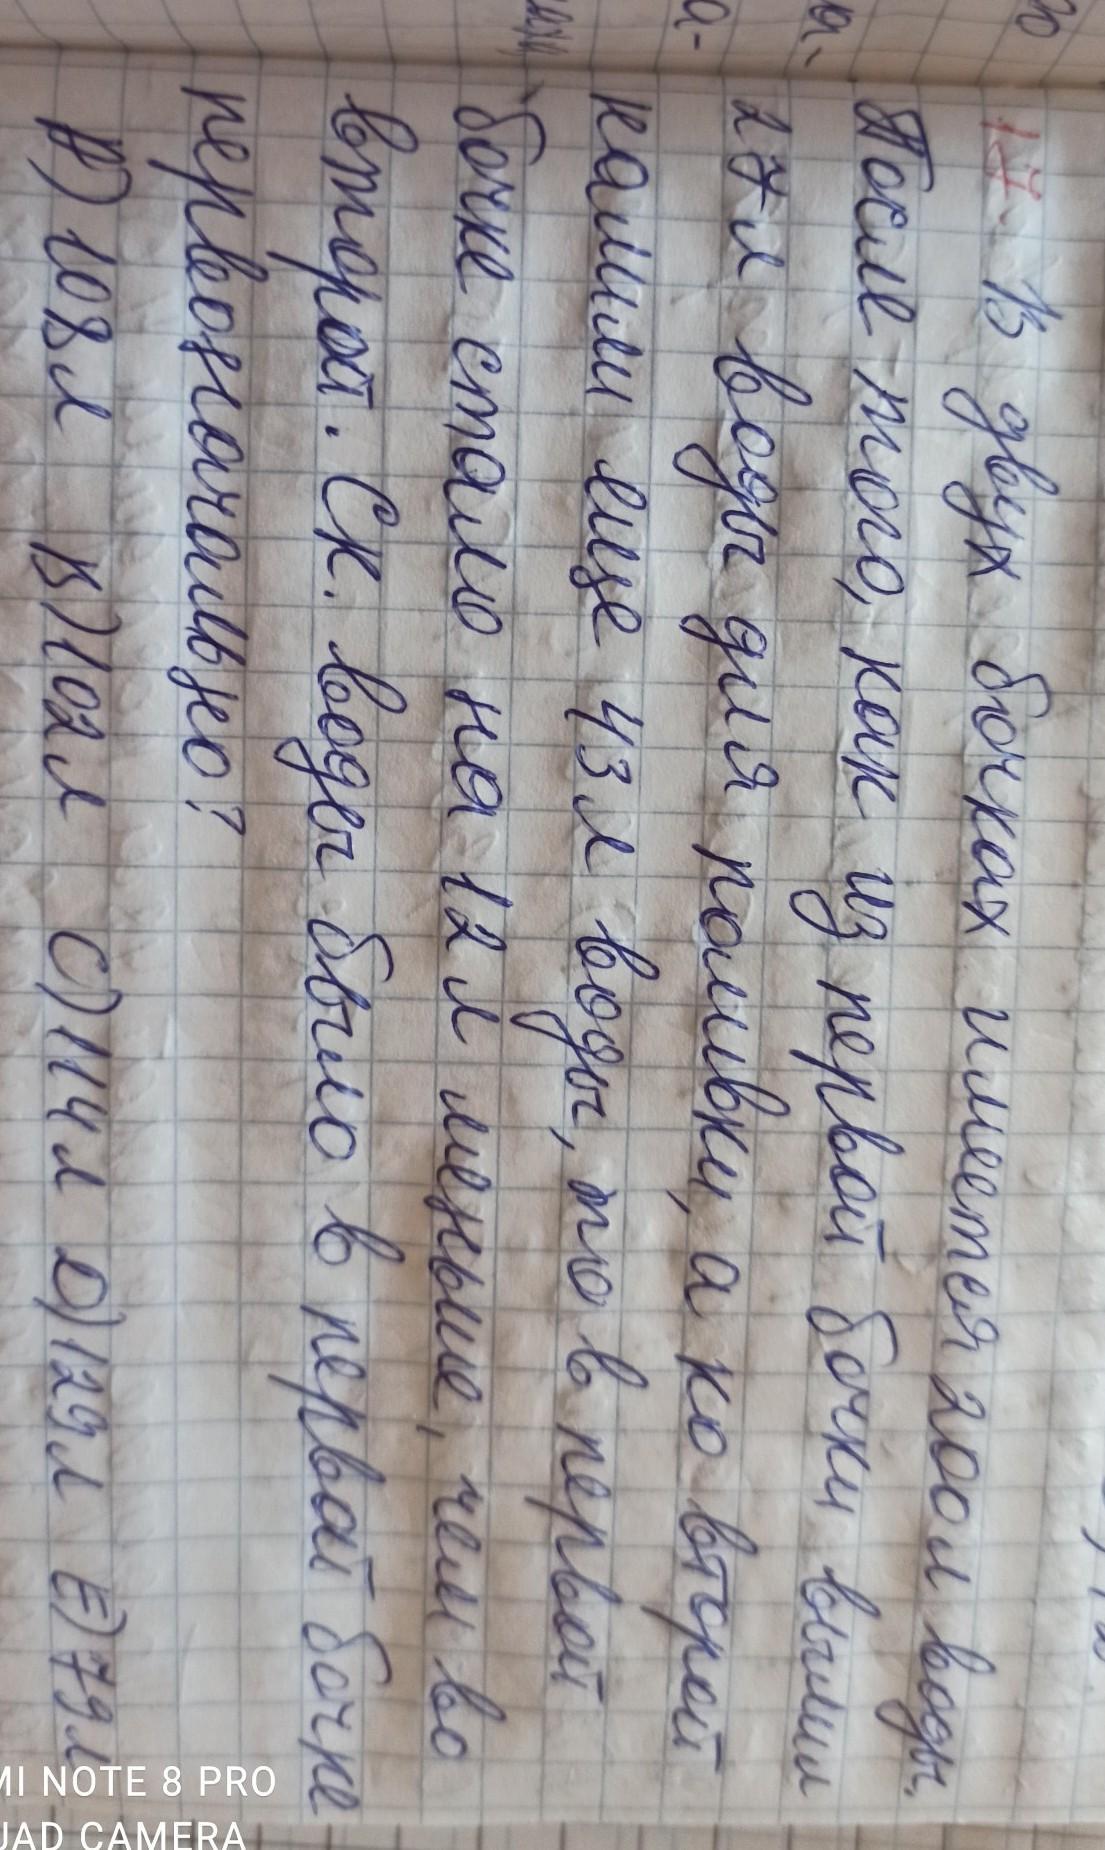 17. В двух бочках имеется 200л воды.
После того, как из первой бочки вылили
27л воды для поливки, а ко второй
налили еще 43л воды, то в первой
бочке стало на 12л меньше, чем во
второй. Ск. воды было в первой бочке
первоначально?
А) 108л В) 102л С) 114л D) 129л Е) 79л
MI NOTE 8 PRO
UAD CAMERA